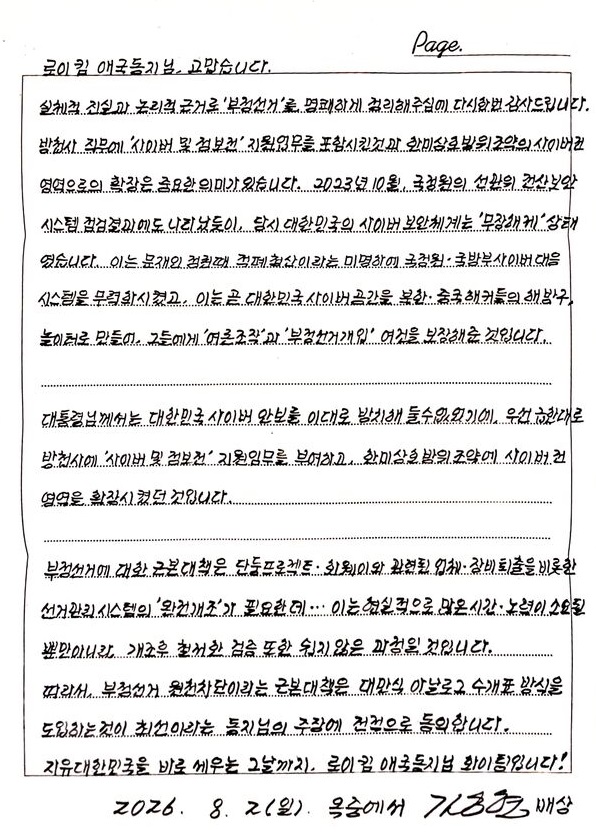 Page.
로이킴 애국동지님, 고맙습니다.
실체적 진실과 논리적 근거로 '부정선거'를 명쾌하게 정리해주심에 다시한번 감사드립니다.
방첩사 직무에 '사이버 및 정보전' 지원업무를 포함시킨것과 한미상호방위조약의 사이버전
영역으로의 확장은 중요한 의미가 있습니다. 2023년 10월, 국정원의 선관위 전산보안
시스템 점검결과에도 나타났듯이, 당시 대한민국의 사이버 보안체계는 "무장해제" 상태
였습니다. 이는 문재인 정권때 적폐청산이라는 미명하에 국정원·국방부사이버대응
시스템을 무력화시켰고, 이는 곧 대한민국 사이버공간을 북한·중국해커들의 해방구,
놀이터로 만들어, 그들에게 '여론조작'과 '부정선거개입' 여건을 보장해준 것입니다.
대통령님께서는 대한민국 사이버 안보를 이대로 방치해 둘수없었기에, 우선 급한대로
방첩사에 '사이버 및 정보전' 지원임무를 부여하고, 한미상호방위조약에 사이버전
영역을 확장시켰던 것입니다.
부정선거에 대한 근본대책은 단둥프로젝트·화웨이와 관련된 업체·장비퇴출을 비롯한
선거관리시스템의 '완전개조'가 필요한데… 이는 현실적으로 많은 시간·노력이 소요될
뿐만아니라, 개조후 철저한 검증 또한 쉽지 않은 과정일 것입니다.
따라서, 부정선거 원천차단이라는 근본대책은 대만식 아날로그 수개표 방식을
도입하는것이 최선이라는 동지님의 주장에 전적으로 동의합니다.
자유대한민국을 바로 세우는 그날까지, 로이킴 애국동지님 화이팅입니다!
2026. 8. 2(일). 옥중에서 배상